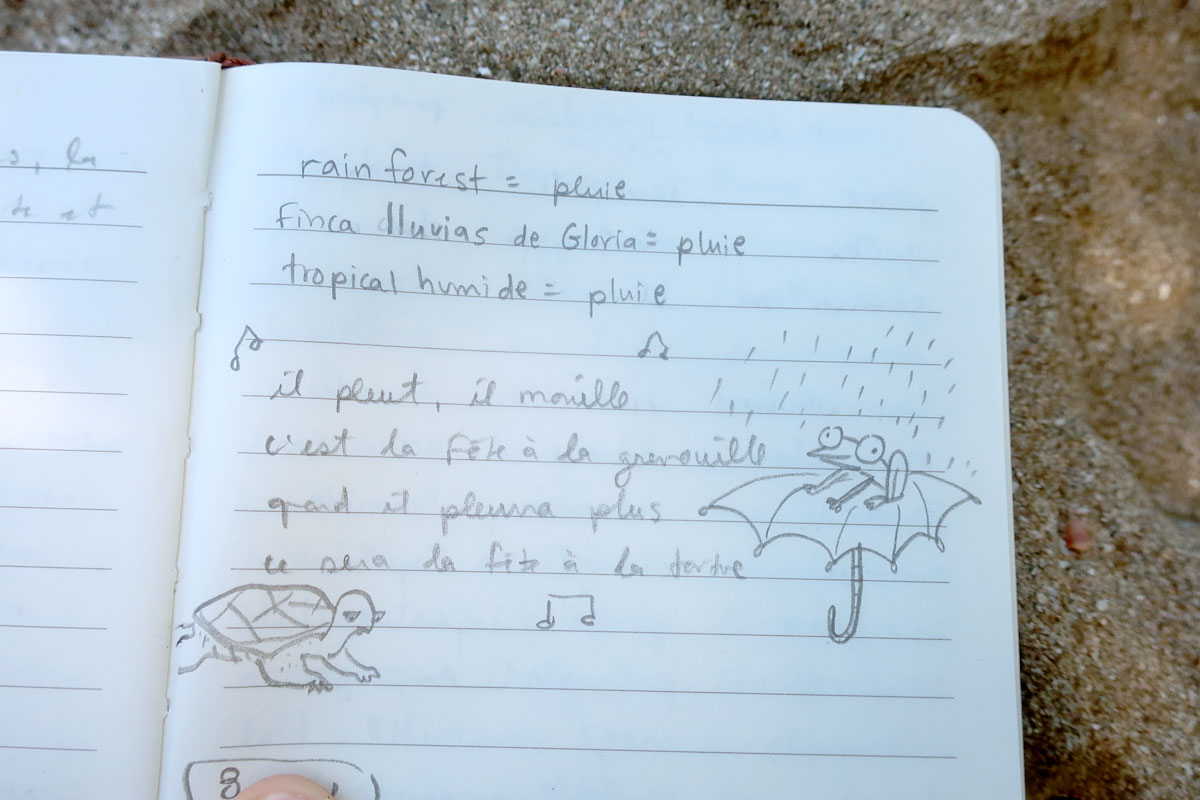 s, la
te et
rain forest = pluie
finca lluvias de Gloria = pluie
tropical humide = pluie
il pleut, il mouille
c'est la fête à la grenouille
quand il pleuvra plus
ce sera la fête à la tortue
8